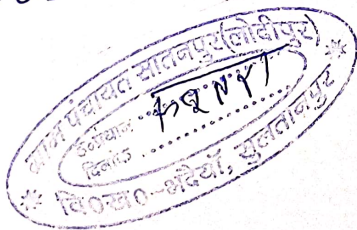 ग्राम पंचायत सातनपुर(लोदीपुर)
क्रमांक
दिनांक
वि०ख०-भदैयाँ, सुलतानपुर